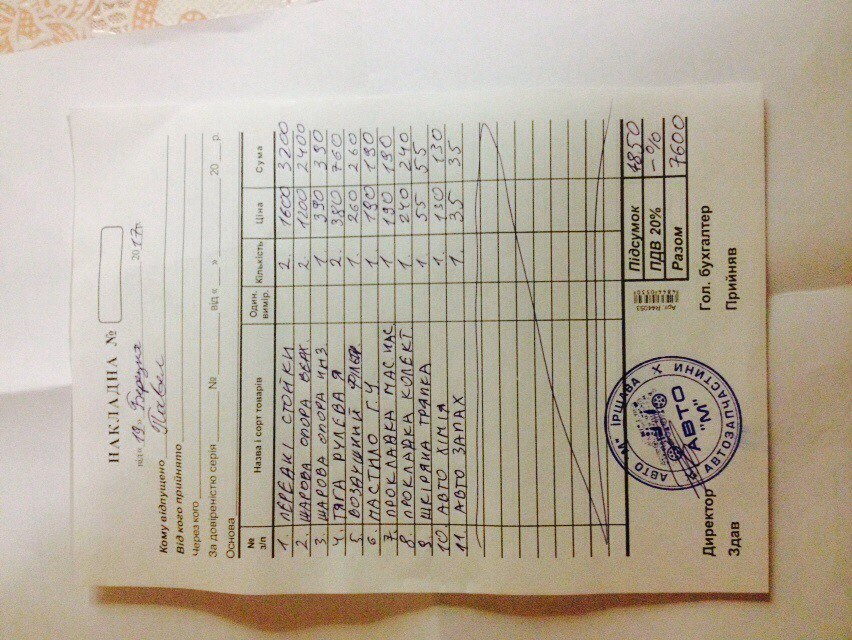 НАКЛАДНА №
від « 19 » Березня 2017р.
Кому відпущено Павел
Від кого прийнято
Через кого
За довіреністю серія № від « » 20 р.
Основа
№ з/п Назва і сорт товарів Один. вимір. Кількість Ціна Сума
1. ПЕРЕДНІ СТОЙКИ 2. 1600 3200
2. ШАРОВА ОПОРА ВЕРХ. 2 1200 2400
3. ШАРОВА ОПОРА НИЗ. 1 390 390
4. ТЯГА РУЛЄВА Я 2. 380 760
5. ВОЗДУШНИЙ ФІЛЬТР 1. 260 260
6. МАСТИЛО Г.У. 1 190 190
7. ПРОКЛАДКА МАС НАС 1 190 190
8 ПРОКЛАДКА КОЛЕКТ 1. 240 240
9 ШКІРЯНА ТРЯПКА 1 55 55
10 АВТО ХІМІЯ 1 130 130
11 АВТО ЗАПАХ 1. 35 35
Підсумок 7850
ПДВ 20% -%
Разом 7600
Арт. R44053
АВТО "М" ІРШАВА
АВТОЗАПЧАСТИНИ
АВТО
"М"
Директор Гол. бухгалтер
Здав Прийняв